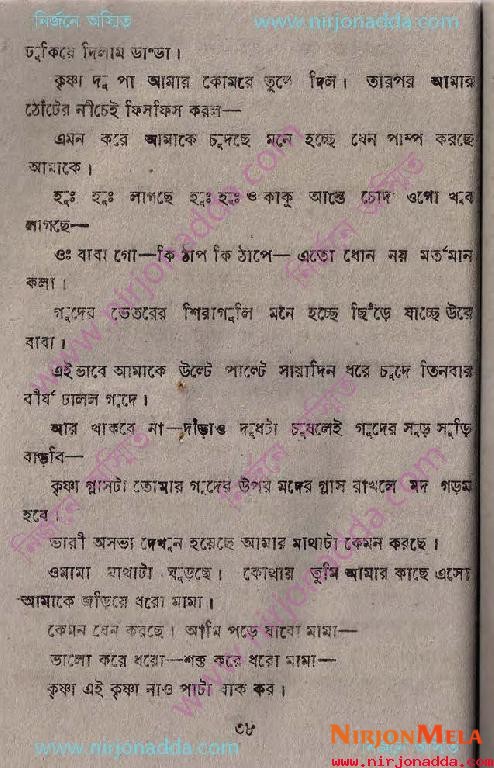 নির্জনে অস্মিত www.nirjonadda.com
ঢুকিয়ে দিলাম ডান্ডা।
কৃষ্ণা দু পা আমার কোমরে তুলে দিল। তারপর আমার
ঠোঁটের নীচেই ফিসফিস করল—
এমন করে আমাকে চুদছে মনে হচ্ছে যেন পাম্প করছে
আমাকে।
হুঃ হুঃ লাগছে হুঃ হুঃ ও কাকু আস্তে চোদ ওগো খুব
লাগছে—
ওঃ বাবা গো—কি ঠাপ কি ঠাপে— এতো ধোন নয় মর্তমান
কলা।
গুদের ভেতরের শিরাগুলি মনে হচ্ছে ছিঁড়ে যাচ্ছে উরে
বাবা।
এইভাবে আমাকে উল্টে পাল্টে সারাদিন ধরে চুদে তিনবার
বীর্য ঢালল গুদে।
আর থাকবে না—দাঁড়াও দুধটা চুষলেই গুদের সুড় সুড়ি
বাড়বি—
কৃষ্ণা গ্লাসটা তোমার গুদের উপর মদের গ্লাস রাখলে মদ গড়ম
হবে।
ভারী অসভ্য দেখুন হয়েছে আমার মাথাটা কেমন করছে।
ওমামা মাথাটা ঘুরছে। কোথায় তুমি আমার কাছে এসো
আমাকে জড়িয়ে ধরো মামা।
কেমন যেন করছে। আমি পড়ে যাবো মামা—
ভালো করে ধরো—শক্ত করে ধরো মামা—
কৃষ্ণা এই কৃষ্ণা নাও পাটা ফাক কর।
৩৮
www.nirjonadda.com নির্জনে অস্মিত
NIRJONMELA
www.nirjonadda.com